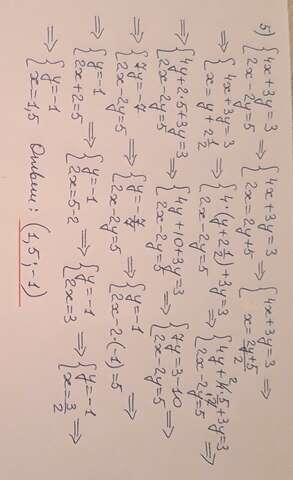 5) {4x+3y=3 {2x-2y=5 ⟹ {4x+3y=3 {2x=2y+5 ⟹ {4x+3y=3 {x=(2y+5)/2 ⟹
⟹ {4x+3y=3 {x=y+2 1/2 ⟹ {4·(y+2 1/2)+3y=3 {2x-2y=5 ⟹ {4y+4·5/2+3y=3 {2x-2y=5 ⟹
⟹ {4y+2·5+3y=3 {2x-2y=5 ⟹ {4y+10+3y=3 {2x-2y=5 ⟹ {7y=3-10 {2x-2y=5 ⟹
⟹ {7y=-7 {2x-2y=5 ⟹ {y=-7/7 {2x-2y=5 ⟹ {y=-1 {2x-2·(-1)=5 ⟹
⟹ {y=-1 {2x+2=5 ⟹ {y=-1 {2x=5-2 ⟹ {y=-1 {2x=3 ⟹ {y=-1 {x=3/2 ⟹
⟹ {y=-1 {x=1,5 Ответ: (1,5; -1)